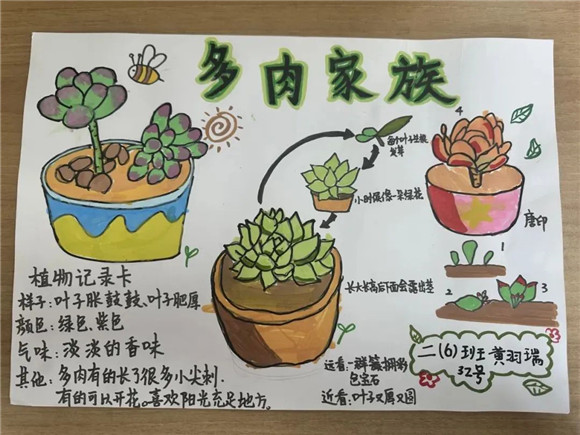 多肉家族
每个叶子生根
发芽
小时很像一朵绿花
4
唐印
1
2
3
长大长高后下面会露出茎
植物记录卡
样子:叶子胀鼓鼓、叶子肥厚
颜色:绿色、紫色
气味:淡淡的香味
其他:多肉有的长了很多小尖刺.
有的可以开花。喜欢阳光充足地方。
远看:一群簇拥的
包宝石
近看:叶子又厚又圆
二(6)班 黄羽瑞
32号